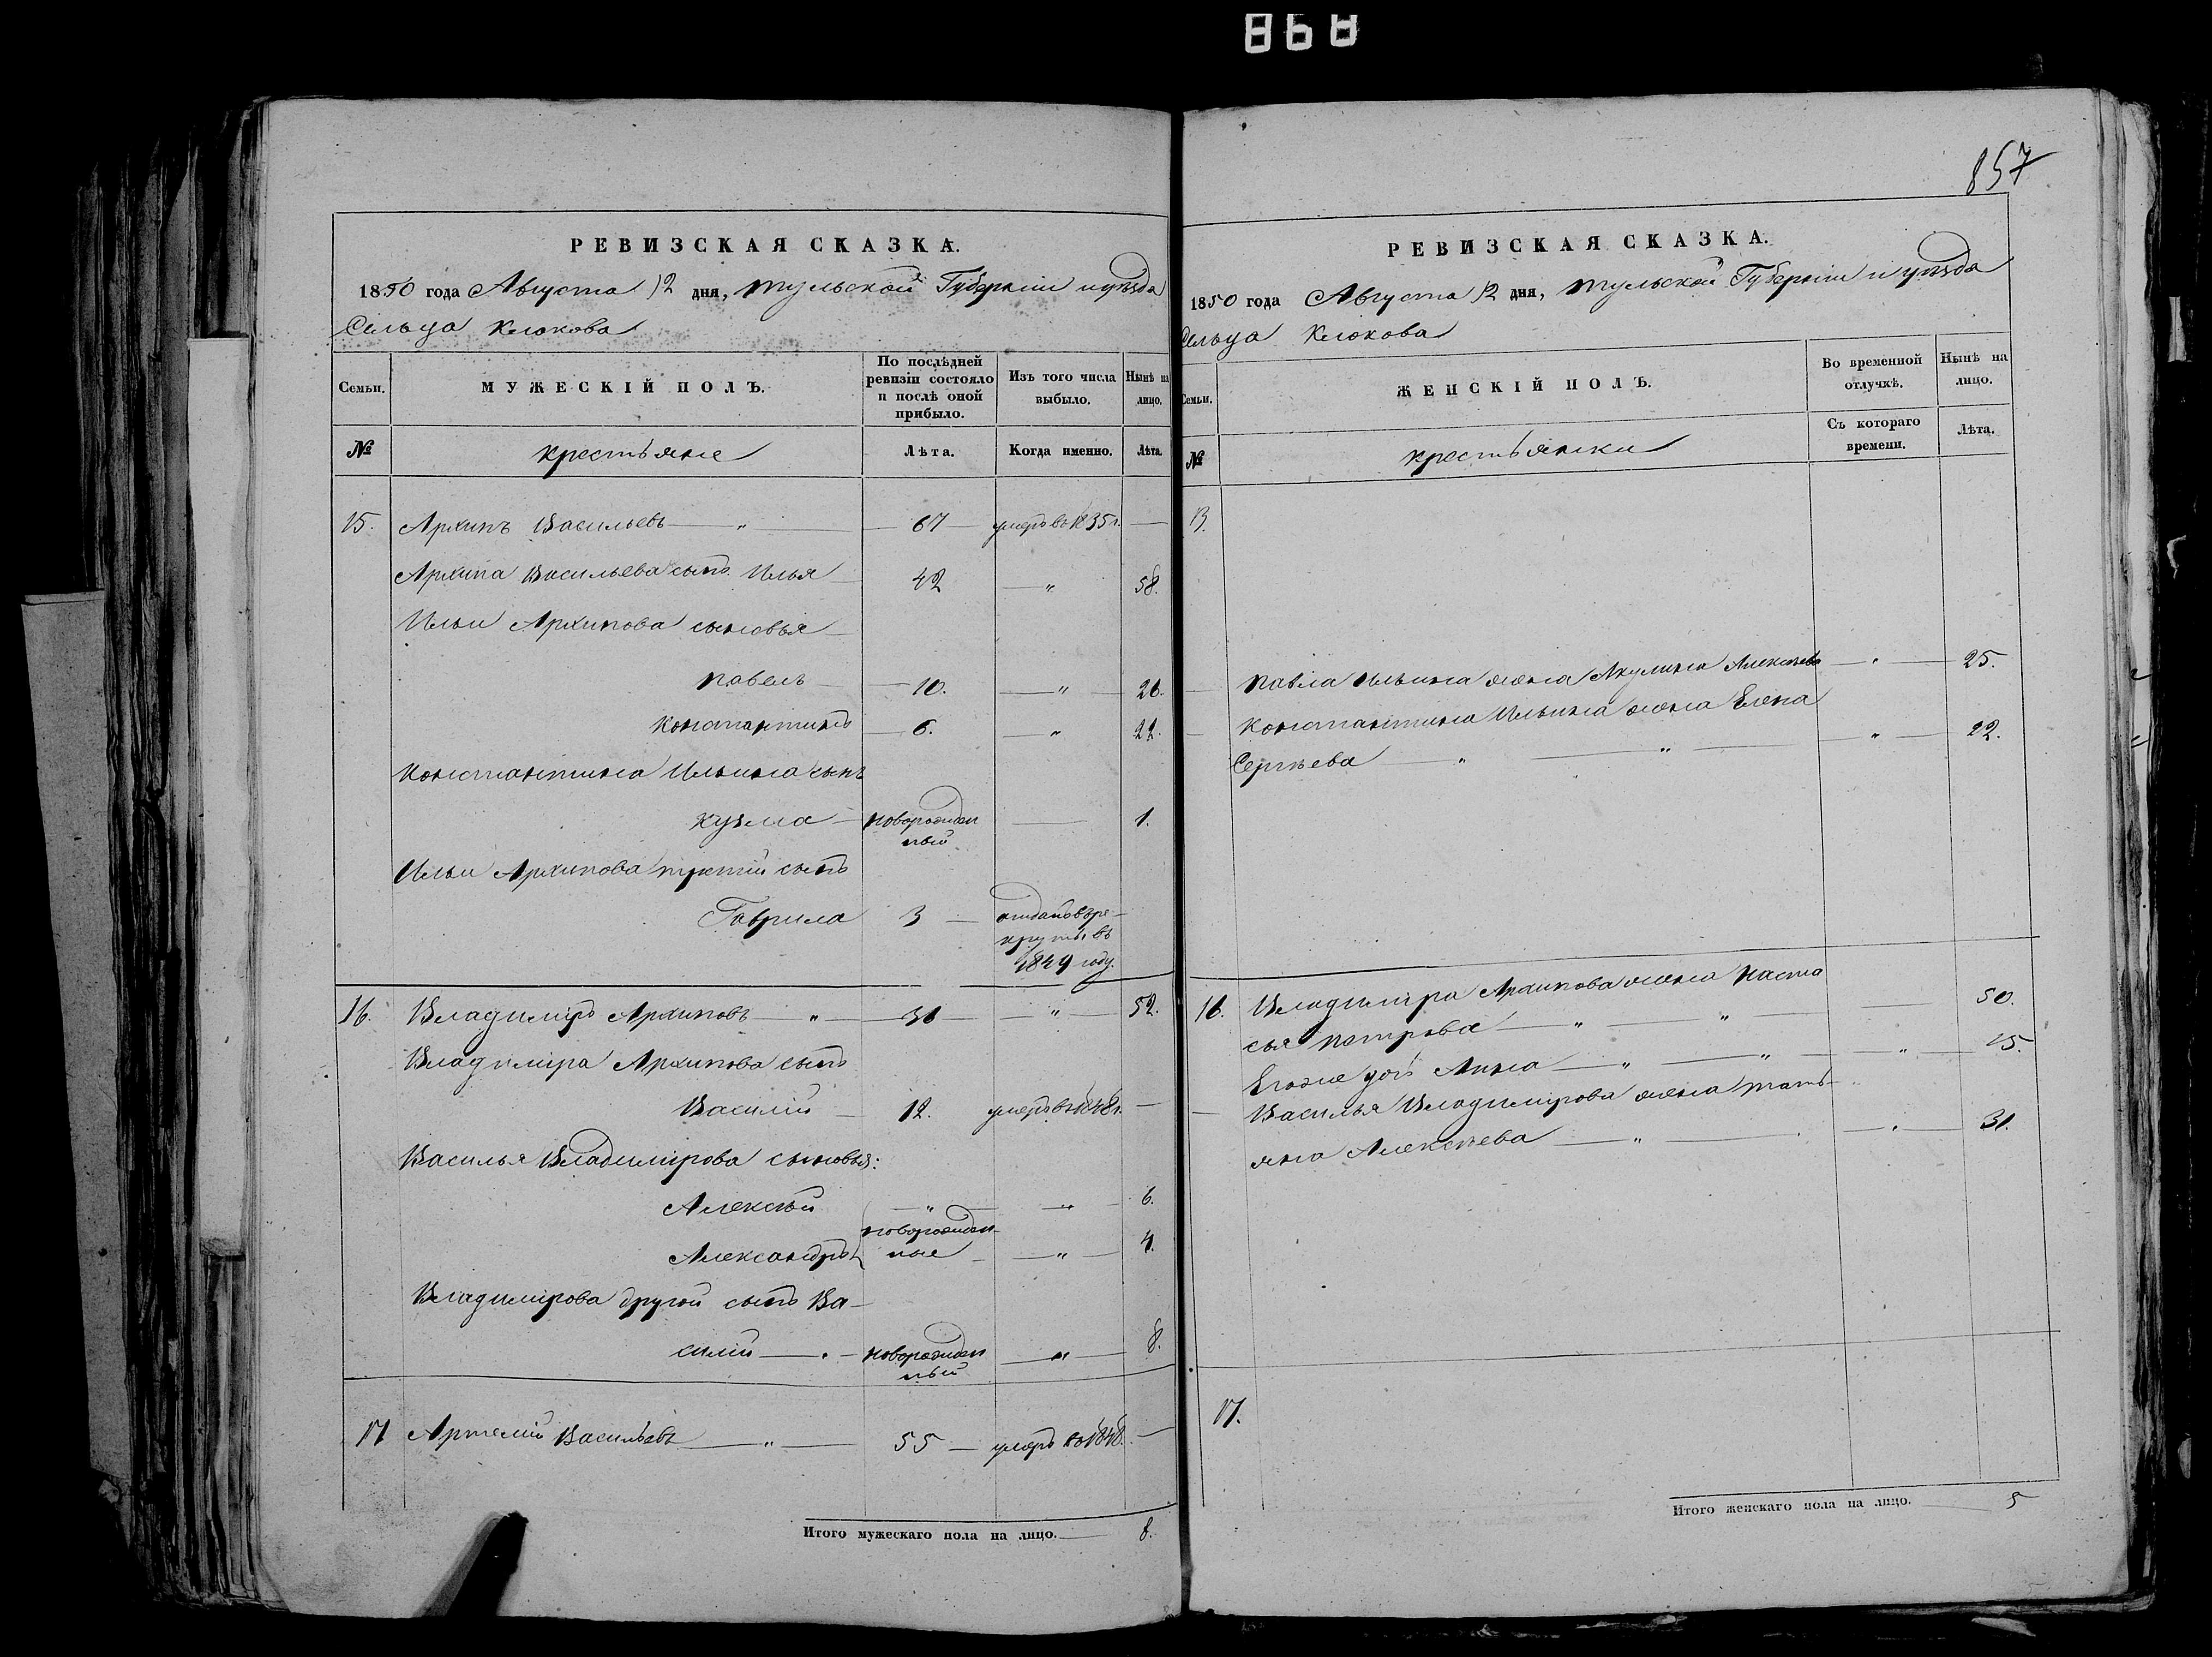 868
857
РЕВИЗСКАЯ СКАЗКА.
1850 года Августа 12 дня, Тульской Губерніи и уѣзда
Сельца Клюкова
Семьи. МУЖЕСКІЙ ПОЛЪ. По послѣдней ревизіи состояло и послѣ оной прибыло. Изъ того числа выбыло. Нынѣ на лицо.
№ крестьяне Лѣта. Когда именно. Лѣта.
15. Архипъ Васильевъ — " — 67 умеръ въ 1835 г. —
Архипа Васильева сынъ Илья 42 — " 58.
Ильи Архипова сыновья
Павелъ — 10. — " — 26.
Константинъ — 6. — " — 22.
Константина Ильина сынъ
Кузма — новорожден
ный — 1.
Ильи Архипова третій сынъ
Гаврила 3 — отданъ въ ре-
круты въ
1849 году.
16. Владиміръ Архиповъ — " — 36 — " 52.
Владиміра Архипова сынъ
Василій — 12. умеръ въ 1848 г. —
Василья Владимірова сыновья:
Алексѣй — " — " — 6.
новорожден-
Александръ ные — " — 4.
Владимірова другой сынъ Ва-
силій — новорожден
ный — " — 8.
17 Артемій Васильевъ — " — 55 — умеръ въ 1848. —
Итого мужескаго пола на лицо. — 8.
РЕВИЗСКАЯ СКАЗКА.
1850 года Августа 12 дня, Тульской Губерніи и уѣзда
Сельца Клюкова
Семьи. ЖЕНСКІЙ ПОЛЪ. Во временной отлучкѣ. Нынѣ на лицо.
№ крестьянки Съ котораго времени. Лѣта.
15.
Павла Ильина жена Акулина Алексѣева — " — 25.
Константина Ильина жена Елена
Сергѣева — " — " — " — 22.
16. Владиміра Архипова жена Наста
сья Петрова — " — " — 50.
Егоже дочь Анна — " — " — " — 15.
Василья Владимірова жена Тать-
яна Алексѣева — " — " — 31.
17.
Итого женскаго пола на лицо. — 5